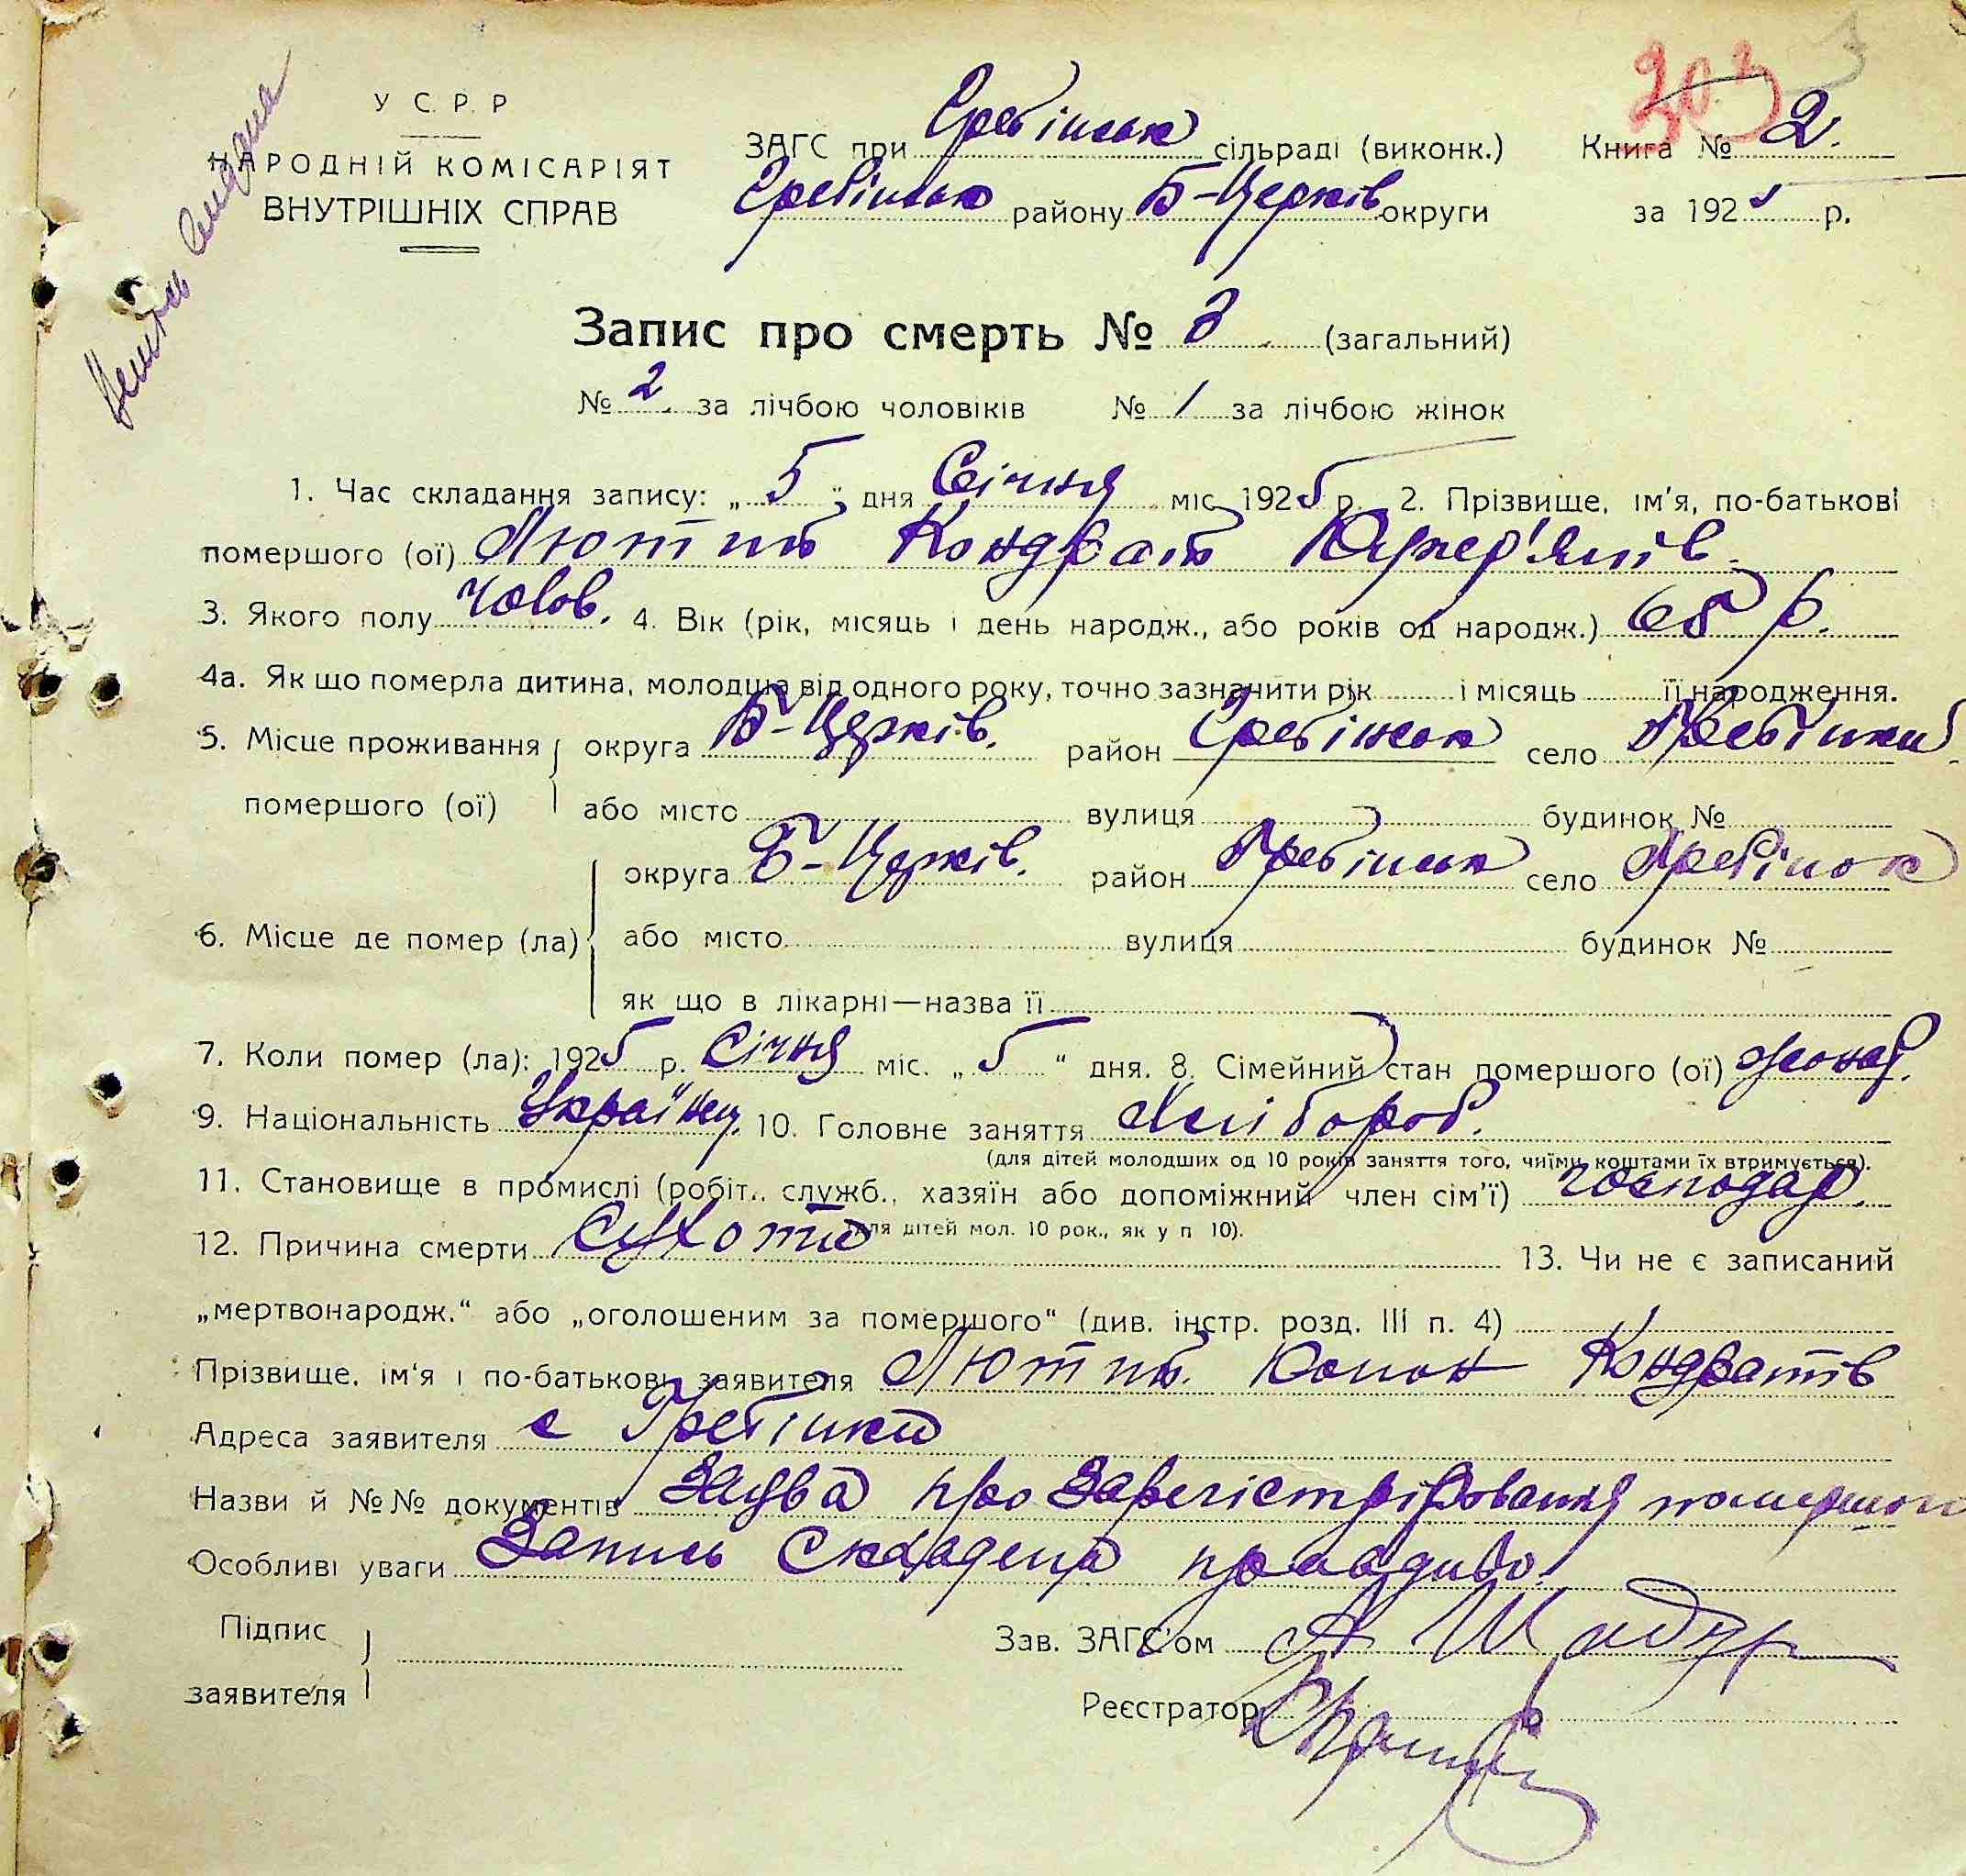 У С. Р. Р
НАРОДНІЙ КОМІСАРІЯТ
ВНУТРІШНІХ СПРАВ
ЗАГС при Гребінськ сільраді (виконк.) Книга № 2.
Гребінськ району Б-Церків округи за 1925 р.
Запис про смерть № 3 (загальний)
№ 2 за лічбою чоловіків № 1 за лічбою жінок
1. Час складання запису: „5" дня Січня міс. 1925 р. 2. Прізвище, ім'я, по-батькові
помершого (ої) Лютий Кондрат
3. Якого полу чолов. 4. Вік (рік, місяць і день народж., або років од народж.) р.
4а. Як що померла дитина, молодша від одного року, точно зазначити рік і місяць її народження.
5. Місце проживання округа Б-Церків. район Гребінськ село Гребінки
помершого (ої) або місто вулиця будинок №
округа Б-Церків. район Гребінськ село Гребінок
6. Місце де помер (ла) або місто вулиця будинок №
як що в лікарні—назва її
7. Коли помер (ла): 1925 р. Січня міс. „5" дня. 8. Сімейний стан помершого (ої) жонат.
9. Національність Українец. 10. Головне заняття Хлібороб.
(для дітей молодших од 10 років заняття того, чиїми коштами їх втримується).
11. Становище в промислі (робіт., служб., хазяїн або допоміжний член сім'ї) господар.
(для дітей мол. 10 рок., як у п 10).
12. Причина смерти Сухоти 13. Чи не є записаний
„мертвонародж." або „оголошеним за помершого" (див. інстр. розд. III п. 4)
Прізвище, ім'я і по-батькові заявителя Лютий. Конон Кондратів
Адреса заявителя с Гребінки
Назви й №№ документів Заява про Зарегістрірования помершого
Особливі уваги Запись Складена правдиво.
Підпис
заявителя
Зав. ЗАГС'ом
Реєстратор